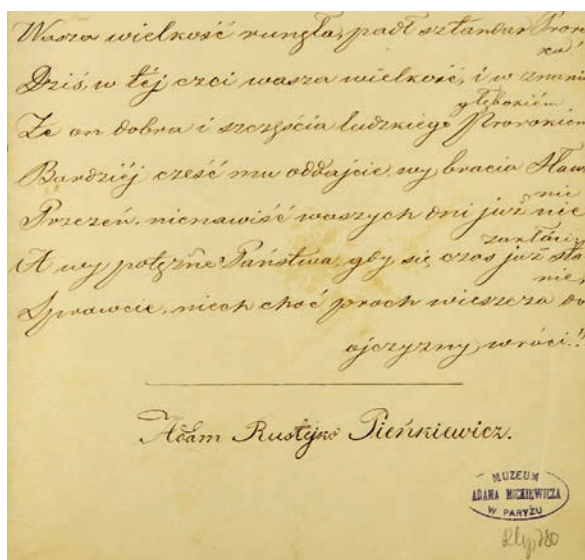 Wasza wielkość runęła, padł sztandar Proro
ka!
Dziś, w téj czci wasza wielkość, i w znaniu
głębokiém
Że on dobra i szczęścia ludzkiego Prorokiem
Bardziéj cześć mu oddajcie, wy bracia Sław
nie
Przezeń, nienawiść waszych dni już nie
zakłóci,
A wy potężne Państwa, gdy się czas już sta
nie,
Sprawcie, niech choć proch wieszcza do
ojczyzny wróci!!
Adam Rustejko Pieńkiewicz.
MUZEUM
ADAMA MICKIEWICZA
W PARYŻU
780